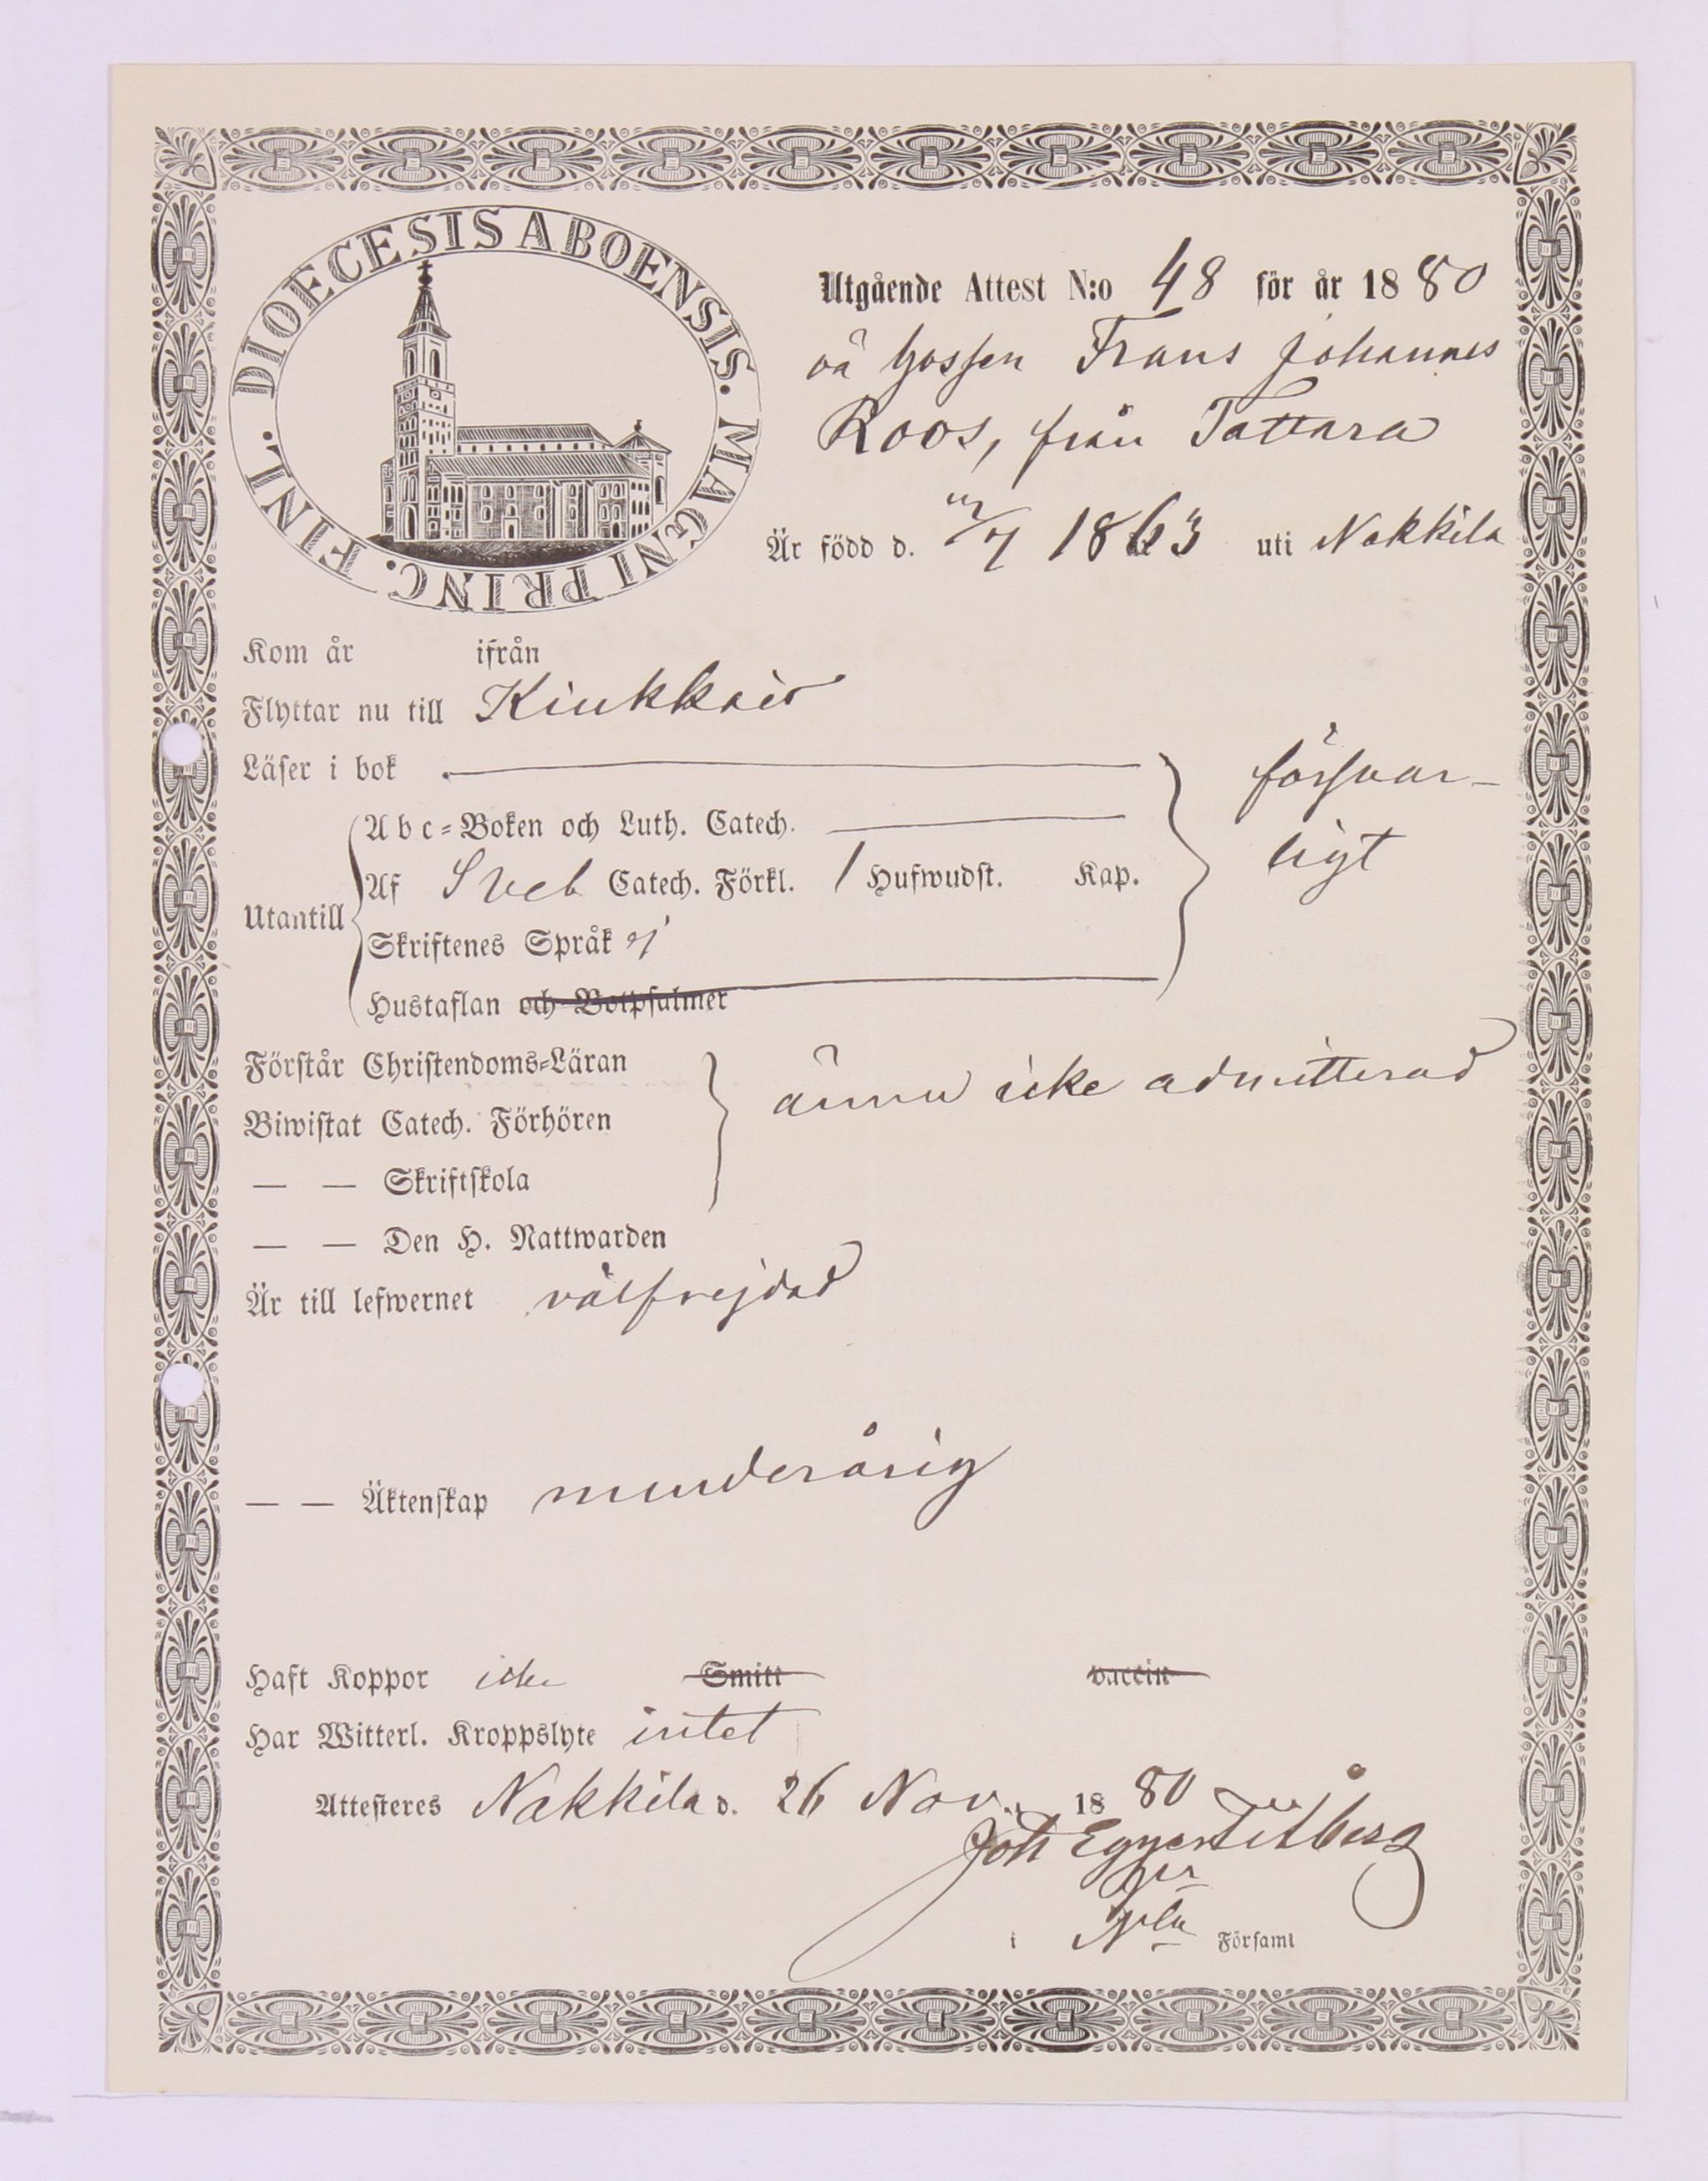 DIOECESIS ABOENSIS. MAGNI PRINC. FINL.
Utgående Attest N:o 48 för år 1880
Gossen Frans Johannes
Roos, från Tattara
Är född d. /7 1863 uti Nakkila
Kom år ifrån
Flyttar nu till Kiukkais
Läser i bok
försvar-
Abc-Boken och Luth. Catech.
ligt
Af Sveb Catech. Förkl. 1 Hufwudst. Kap.
Utantill
Skriftenes Språk ej
Hustaflan och Botpsalmer
Förstår Christendoms-Läran
ännu icke admitterad
Biwistat Catech. Förhören
— — Skriftskola
— — Den H. Nattwarden
Är till lefwernet välfrejdad
— — Äktenskap minderårig
Haft Koppor icke Smitt vaccin
Har Witterl. Kroppslyte intet
Attesteres Nakkila d. 26 Nov. 1880
Joh Egger
i Nla Församl